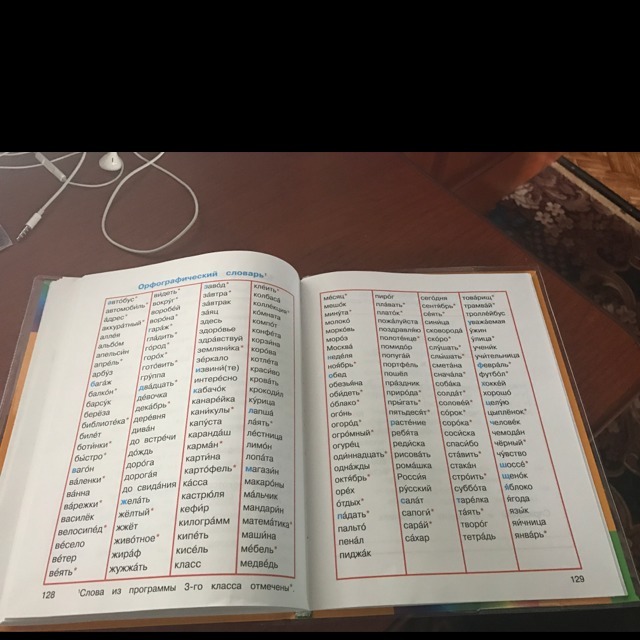 Орфографический словарь¹
авто́бус*
автомоби́ль*
а́дрес*
аккура́тный*
алле́я
альбо́м
апельси́н
апре́ль*
арбу́з
бага́ж
балко́н*
барсу́к
берёза
библиоте́ка*
биле́т
боти́нки*
бы́стро*
ваго́н
ва́ленки*
ва́нна
ва́режки*
василёк
велосипе́д*
ве́село
ве́тер
ве́ять*
ви́деть*
вокру́г*
воробе́й
воро́на*
гара́ж*
гла́дить*
го́род*
горо́х*
гото́вить*
гру́ппа
два́дцать*
де́вочка
дека́брь*
дере́вня
дива́н
до встре́чи
до́ждь
доро́га
дорога́я
до свида́ния
жела́ть
жёлтый*
жжёт
живо́тное*
жира́ф
жужжа́ть
заво́д*
за́втра*
за́втрак
за́яц
здесь
здоро́вье
здра́вствуй
земляни́ка*
зе́ркало
извини́(те)
интере́сно
кабачо́к
канаре́йка
кани́кулы*
капу́ста
каранда́ш
карма́н*
карти́на
карто́фель*
ка́сса
кастрю́ля
кефи́р
килогра́мм
кипе́ть
кисе́ль
класс
кле́ить*
колбаса́
колле́кция*
ко́мната
компо́т
конфе́та
корзи́на
коро́ва
котле́та
краси́во
крова́ть
крокоди́л
ку́рица
лапша́
ла́ять*
ле́стница
лимо́н
лопа́та
магази́н
макаро́ны
ма́льчик
мандари́н
матема́тика*
маши́на
ме́бель*
медве́дь
128
¹Слова из программы 3-го класса отмечены*.
ме́сяц*
мешо́к
мину́та*
молоко́
морко́вь
моро́з
Москва́
неде́ля
ноя́брь*
обе́д
обезья́на
оби́деть*
о́блако*
ого́нь
огоро́д*
огро́мный*
огуре́ц
оди́ннадцать*
одна́жды
октя́брь*
оре́х
о́тдых*
па́дать*
пальто́
пена́л
пиджа́к
пиро́г
пла́вать*
плато́к*
пожа́луйста
поздравля́ю
полоте́нце*
помидо́р
попуга́й
портфе́ль
пошёл
пра́здник
приро́да*
пры́гать*
пятьдеся́т*
расте́ние
ребя́та
реди́ска
рисова́ть
рома́шка
Росси́я
ру́сский
сала́т
сапоги́*
сара́й*
са́хар
сего́дня
сентя́брь*
се́ять*
сини́ца
сковорода́
ско́ро*
слу́шать*
слы́шать*
смета́на
снача́ла*
соба́ка
солда́т*
солове́й*
со́рок*
соро́ка*
соси́ска
спаси́бо
ста́вить*
стака́н
стро́ить*
суббо́та
таре́лка
та́ять*
творо́г
тетра́дь
това́рищ*
трамва́й*
тролле́йбус
уважа́емая
у́жин
у́лица*
учени́к
учи́тельница
февра́ль*
футбо́л*
хокке́й
хорошо́
целу́ю
цыплёнок*
челове́к
чемода́н
чёрный*
чу́вство
шоссе́*
щено́к
я́блоко
я́года
язы́к
яи́чница
янва́рь*
129